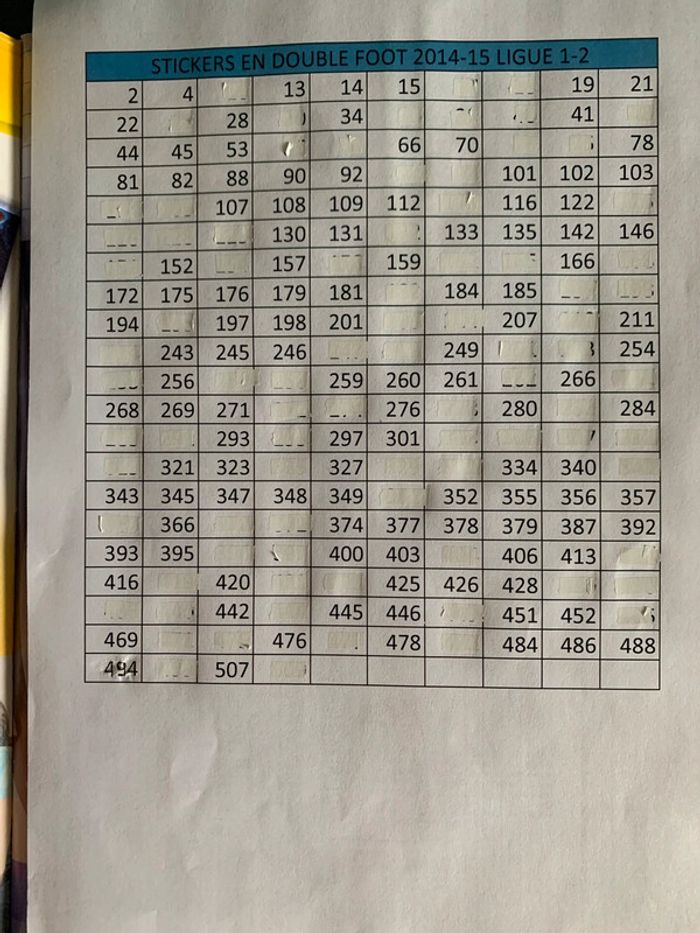 STICKERS EN DOUBLE FOOT 2014-15 LIGUE 1-2
2 4 13 14 15 19 21
22 28 34 41
44 45 53 66 70 78
81 82 88 90 92 101 102 103
107 108 109 112 116 122
130 131 133 135 142 146
152 157 159 166
172 175 176 179 181 184 185
194 197 198 201 207 211
243 245 246 249 254
256 259 260 261 266
268 269 271 276 280 284
293 297 301
321 323 327 334 340
343 345 347 348 349 352 355 356 357
366 374 377 378 379 387 392
393 395 400 403 406 413
416 420 425 426 428
442 445 446 451 452
469 476 478 484 486 488
494 507